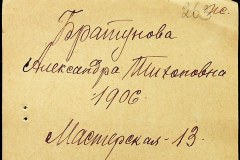 Братунова
Александра Тихоновна
1906.
Мастерская - 13.